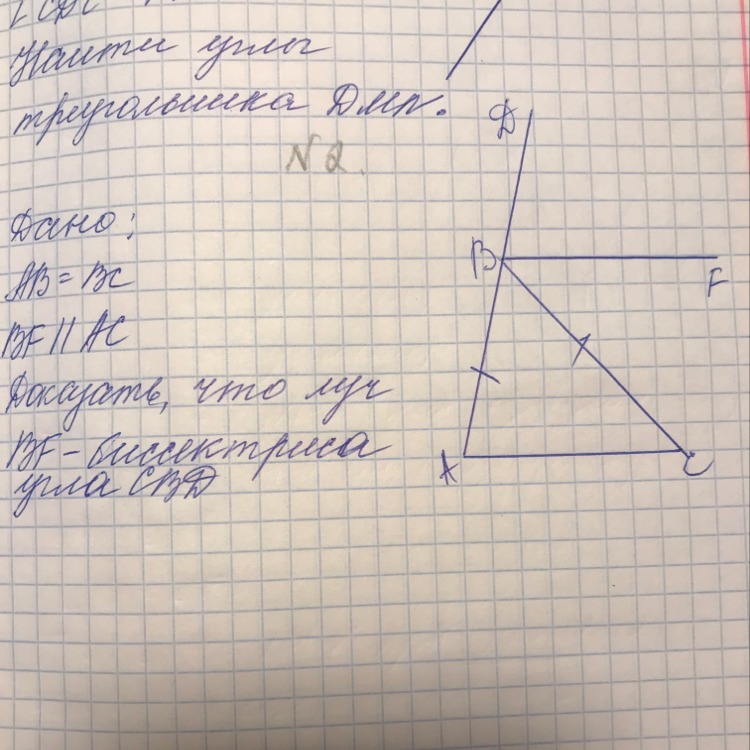 Найти углы
треугольника DМN.
N 2.
Дано:
AB = BC
BF || AC
Доказать, что луч
BF - биссектриса
угла CBD
D
B
F
A
C